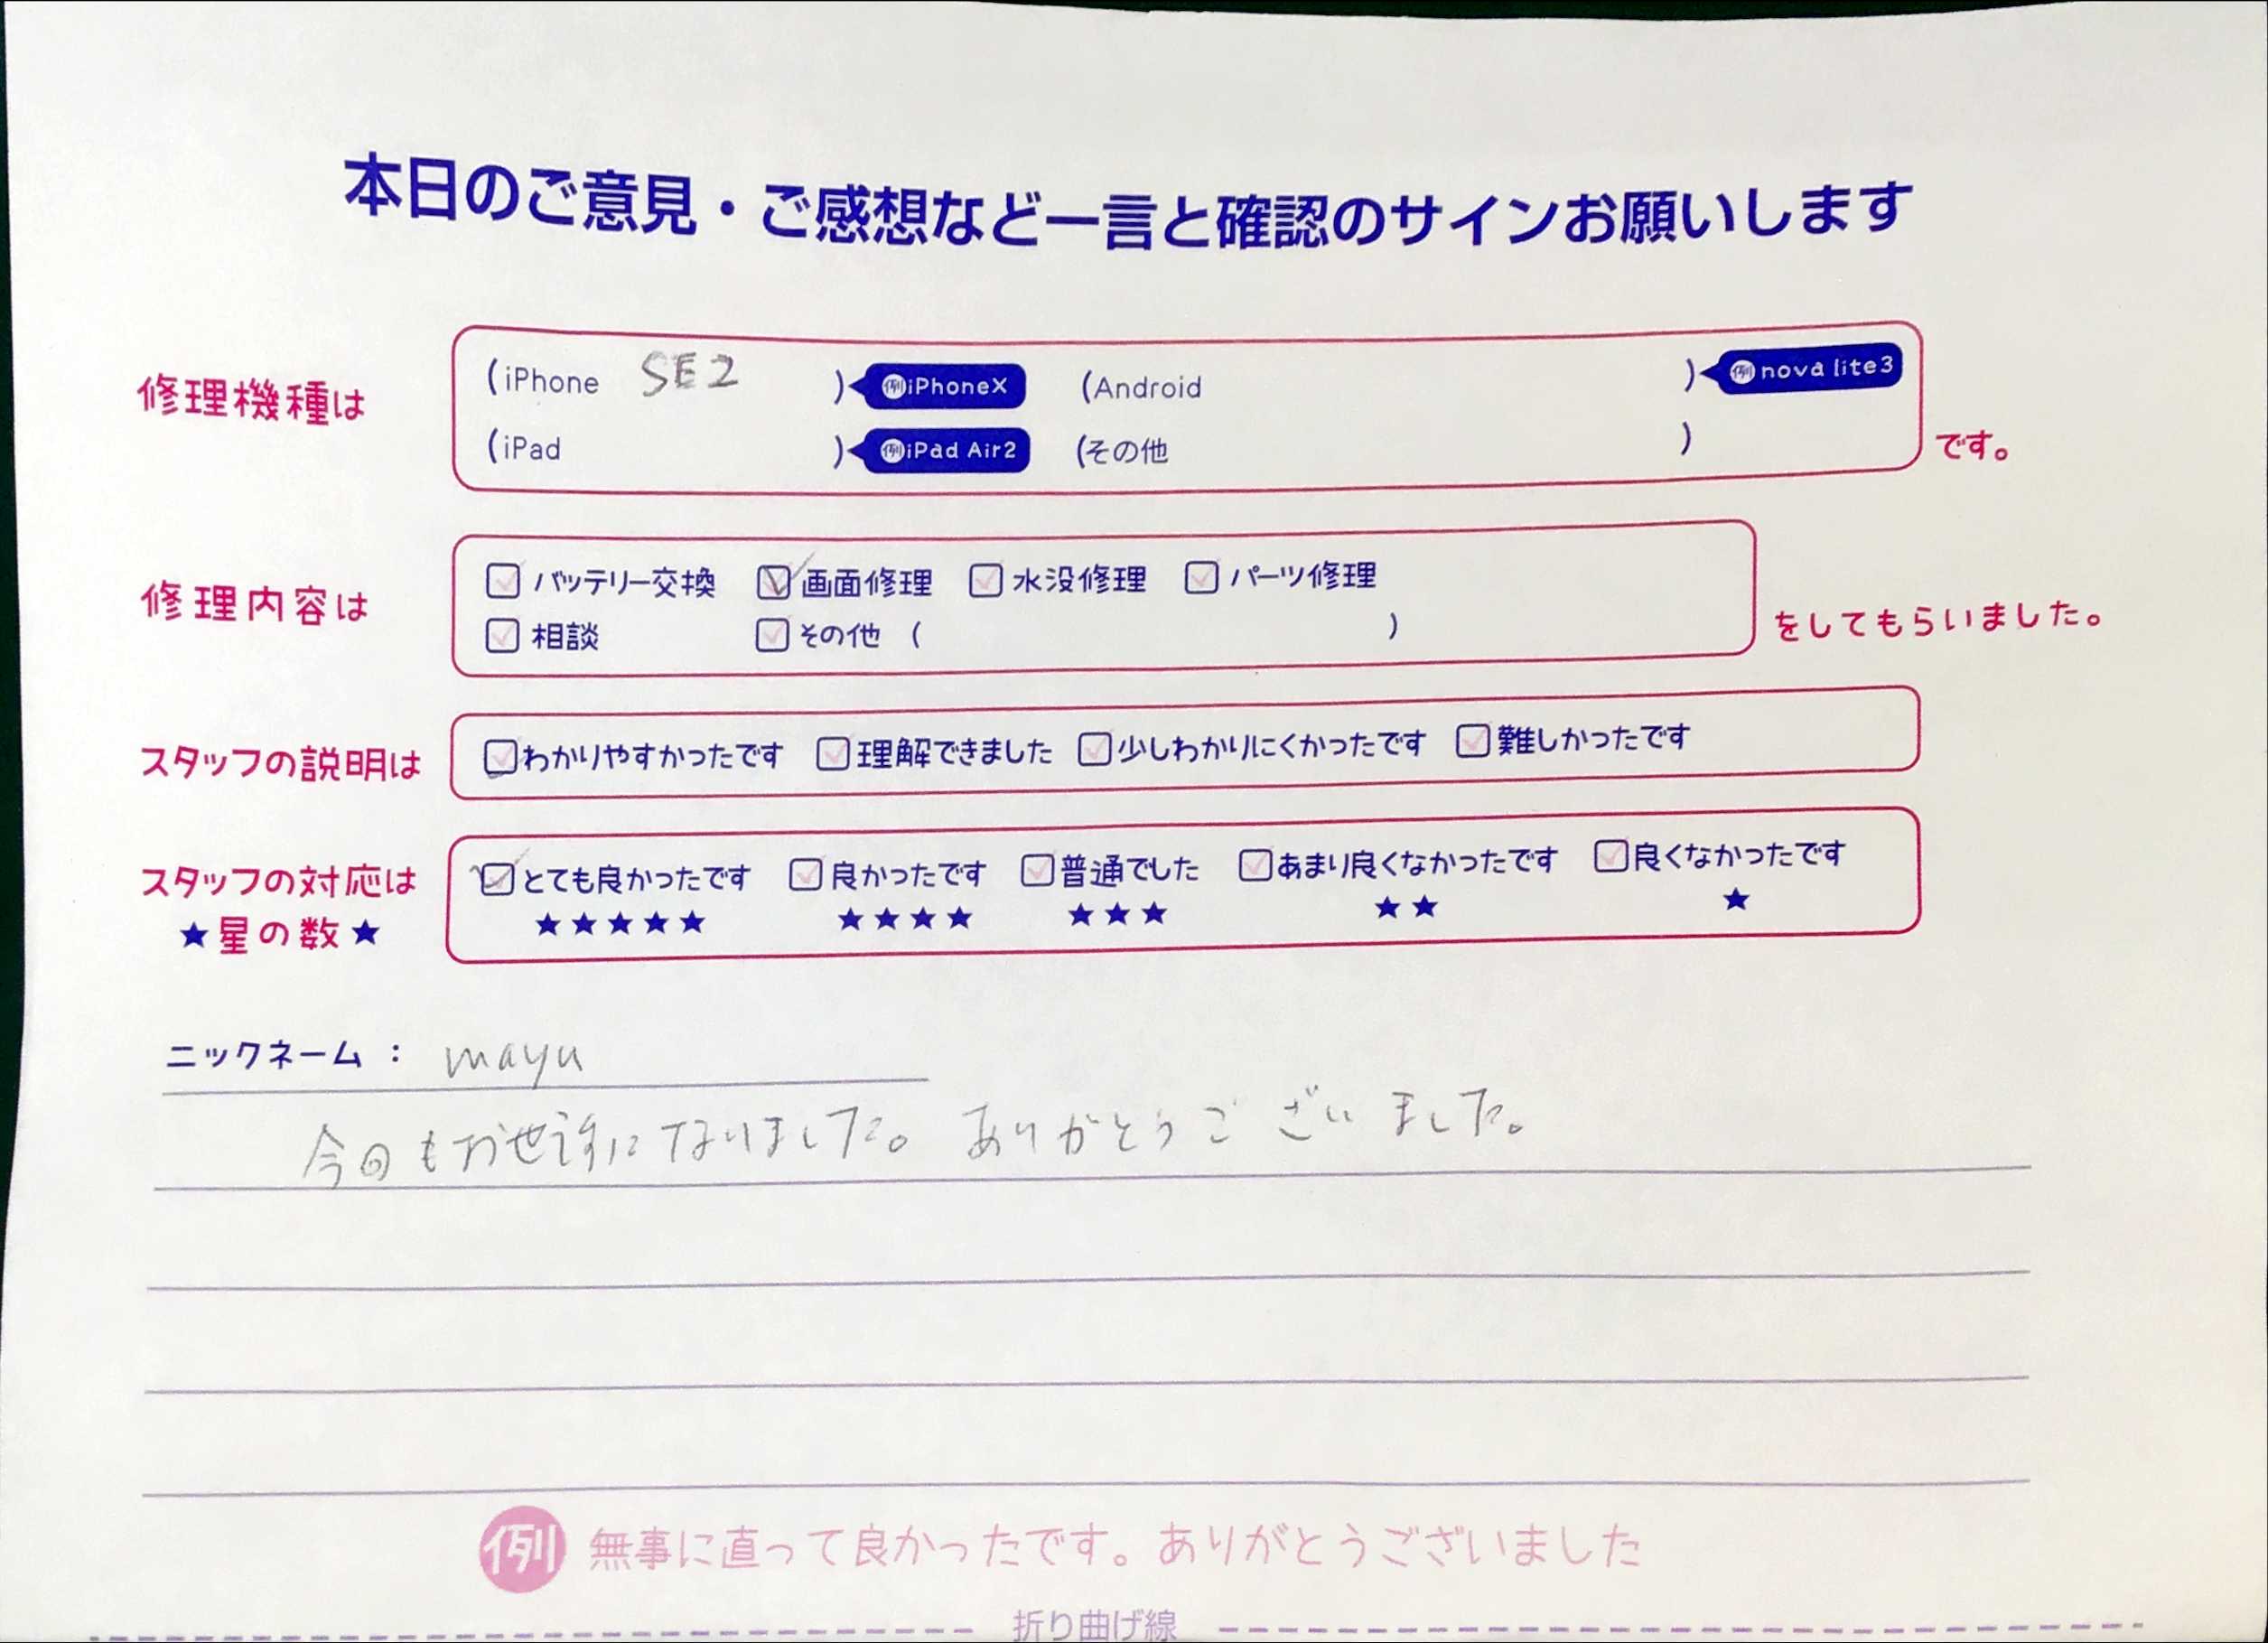 本日のご意見・ご感想など一言と確認のサインお願いします
修理機種は
(iPhone SE2 ) 例iPhoneX (Android ) 例nova lite3
(iPad ) 例iPad Air2 (その他 ) です。
修理内容は
バッテリー交換 画面修理 水没修理 パーツ修理
相談 その他 ( ) をしてもらいました。
スタッフの説明は わかりやすかったです 理解できました 少しわかりにくかったです 難しかったです
スタッフの対応は とても良かったです 良かったです 普通でした あまり良くなかったです 良くなかったです
★星の数★ ★★★★★ ★★★★ ★★★ ★★ ★
ニックネーム : mayu
今回もお世話になりました。ありがとうございました。
例 無事に直って良かったです。ありがとうございました
折り曲げ線